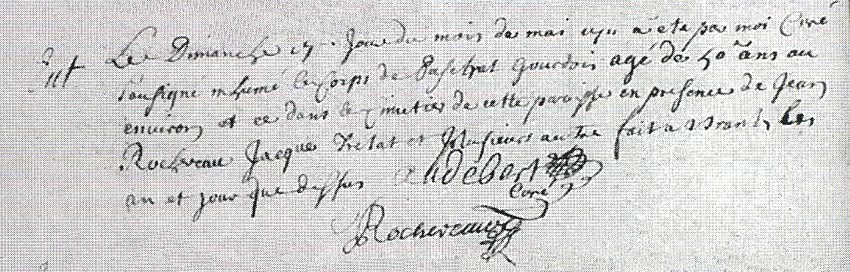 Le Dimanche 17 Jour du mois de mai 1711 a eta par moi Curé
sousigne inhumé le Corps de Paschal Gourdois agé de 50 ans au
environ et ce dans le cimetier de cette paroisse en presence de Jean
Rochereau Jacque Tretat et plusieurs autre fait a les
an et jour que dessus Audebert
Curé
Rochereau